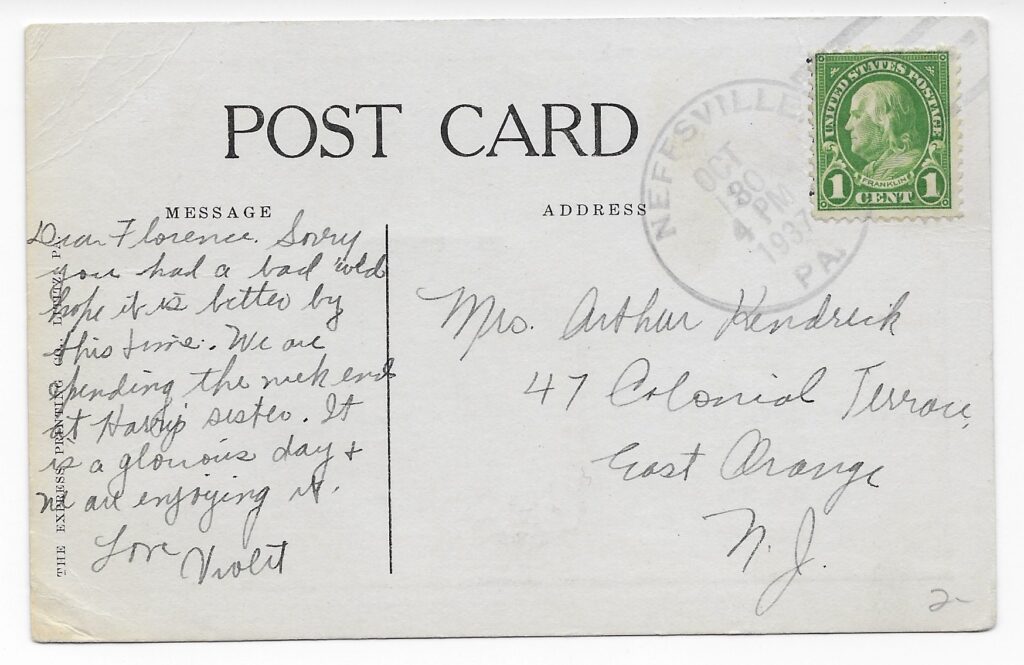 POST CARD
MESSAGE
ADDRESS
Dear Florence. Sorry
you had a bad cold
hope it is better by
this time. We are
spending the week end
at Harry's sister. It
is a glorious day +
we are enjoying it.
Love
Violet
THE EXPRESS PRINTING CO. LITITZ PA.
NEFFSVILLE
OCT
30
4 PM
1937
PA.
UNITED STATES POSTAGE
FRANKLIN
1 CENT 1
Mrs. Arthur Kendrick
47 Colonial Terrace,
East Orange
N. J.
2-